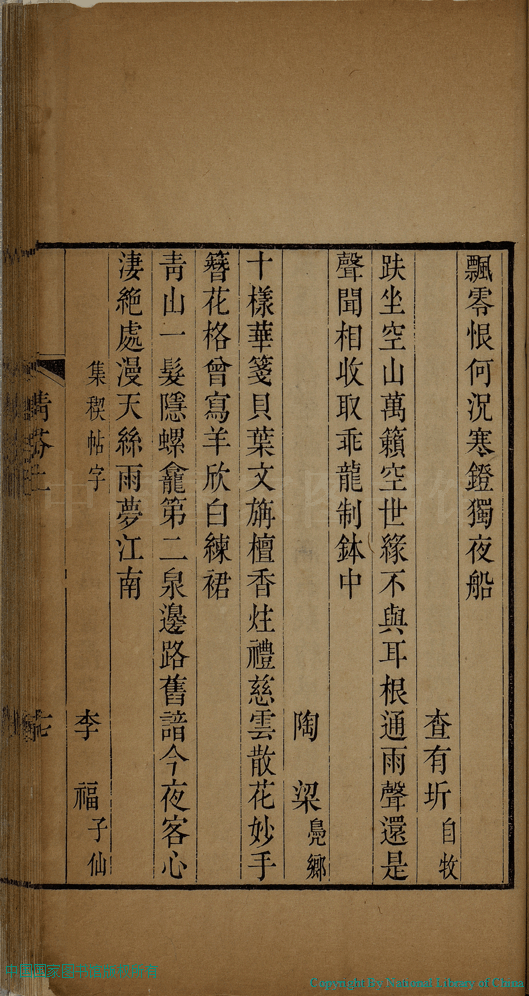 飄零恨何況寒鐙獨夜船
查有圻自牧
趺坐空山萬籟空世緣不與耳根通雨聲還是
聲聞相收取乖龍制鉢中
陶梁鳧鄉
十樣華箋貝葉文旃檀香炷禮慈雲散花妙手
簪花格曾寫羊欣白練裙
青山一髮隱螺龕第二泉邊路舊諳今夜客心
淒絕處漫天絲雨夢江南
集禊帖字
李福子仙
Copyright By National Library of China